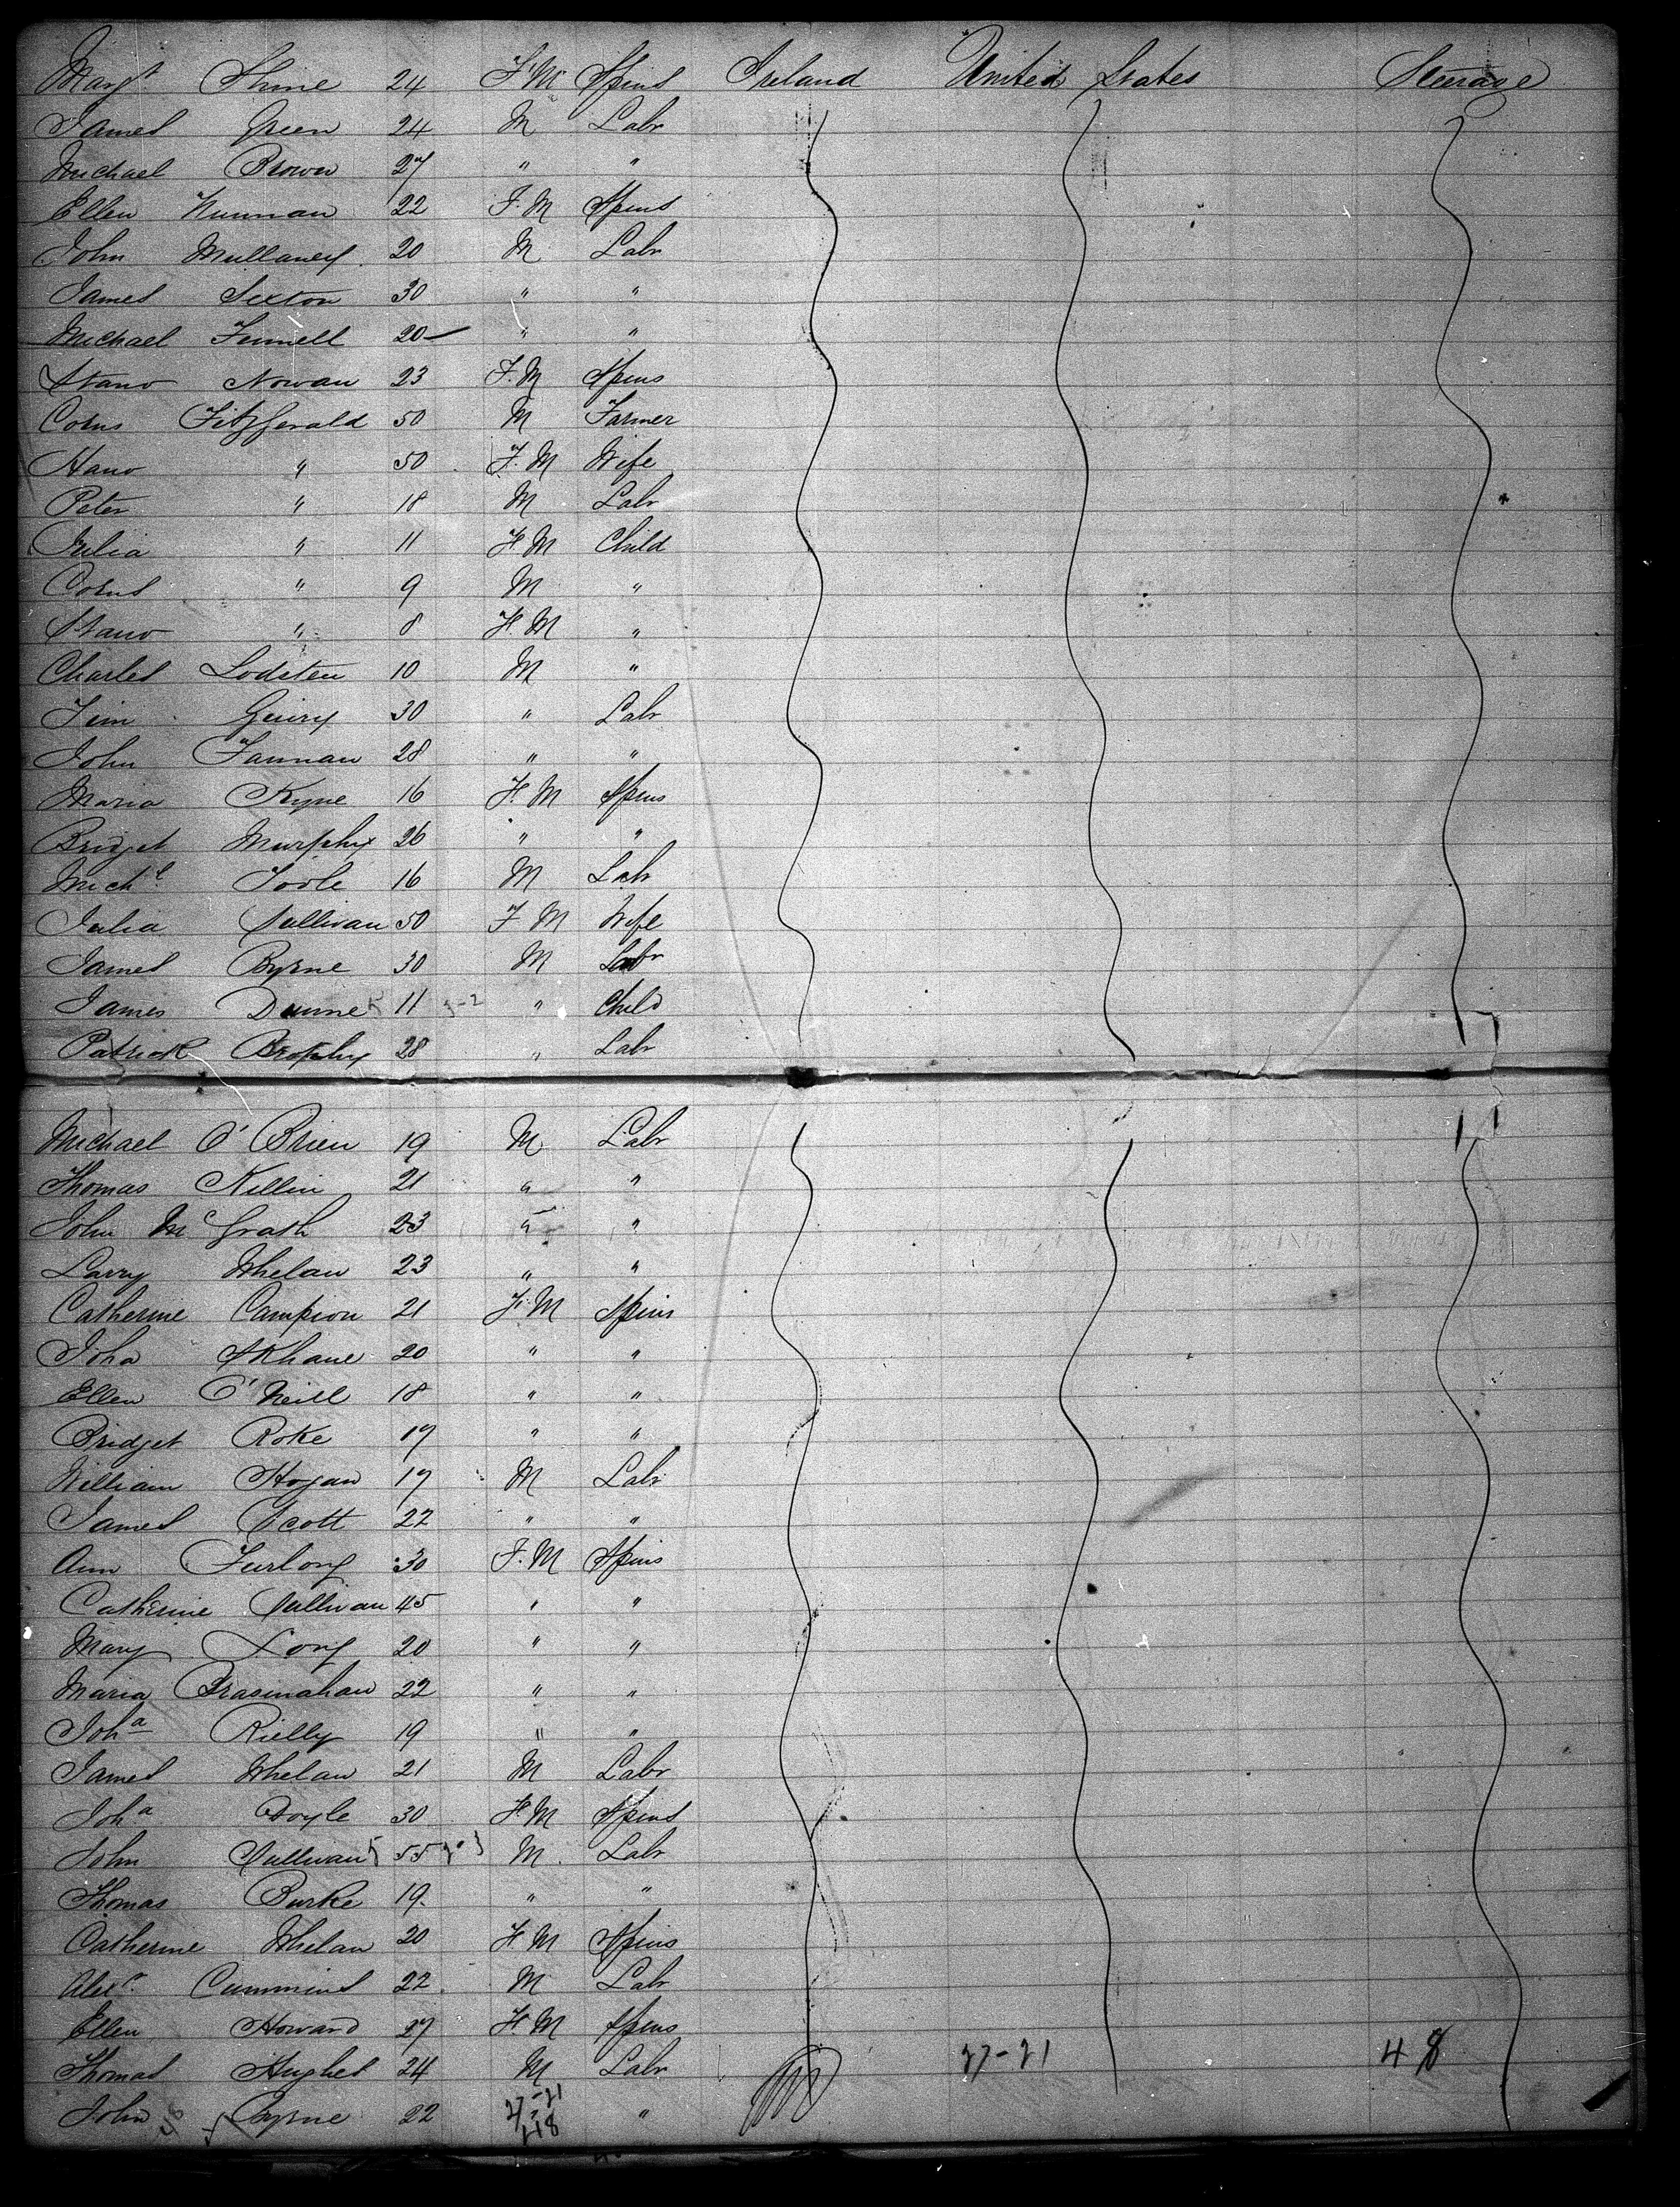 Margt Shine 24 F.M Spins Ireland United States Steerage
James Green 24 M Labr
Michael Brown 27 " "
Ellen 22 F.M Spins
John Mullaney 20 M Labr
James Sexton 30 " "
Michael Fennell 20 " "
Nowan 23 F.M Spins
Corns Fitzgerald 50 M Farmer
Hano " 50 F.M Wife
Peter " 18 M Labr
Julia " 11 F.M Child
Corns " 9 M "
" 8 F.M "
Charles 10 M "
Tim 30 " Labr
John Fannan 28 " "
Maria Kyne 16 F.M Spins
Bridget Murphy 26 " "
Michl Toole 16 M Labr
Julia Sullivan 50 F M Wife
James Byrne 30 M Labr
James Dunne 11 " Child
Patrick Brophy 28 " Labr
Michael O'Brien 19 M Labr
Thomas Killin 21 " "
John McGrath 23 " "
Larry Whelan 23 " "
Catherine Campion 21 F.M Spins
Joha 20 " "
Ellen O'Neill 18 " "
Bridget Roke 17 " "
William Hogan 17 M Labr
James Scott 22 " "
Ann Furlong 30 F.M Spins
Catherine Sullivan 45 " "
Mary Long 20 " "
Maria 22 " "
Joha Rielly 19 " "
James Whelan 21 M Labr
Joha Doyle 30 F.M Spins
John Sullivan 55 M Labr
Thomas Burke 19 " "
Catherine Whelan 20 F.M Spins
Alexr Cummins 22 M Labr
Ellen Howard 27 F.M Spins
Thomas Hughes 24 M Labr 27-21 48
John Byrne 22 " "
27-21
48